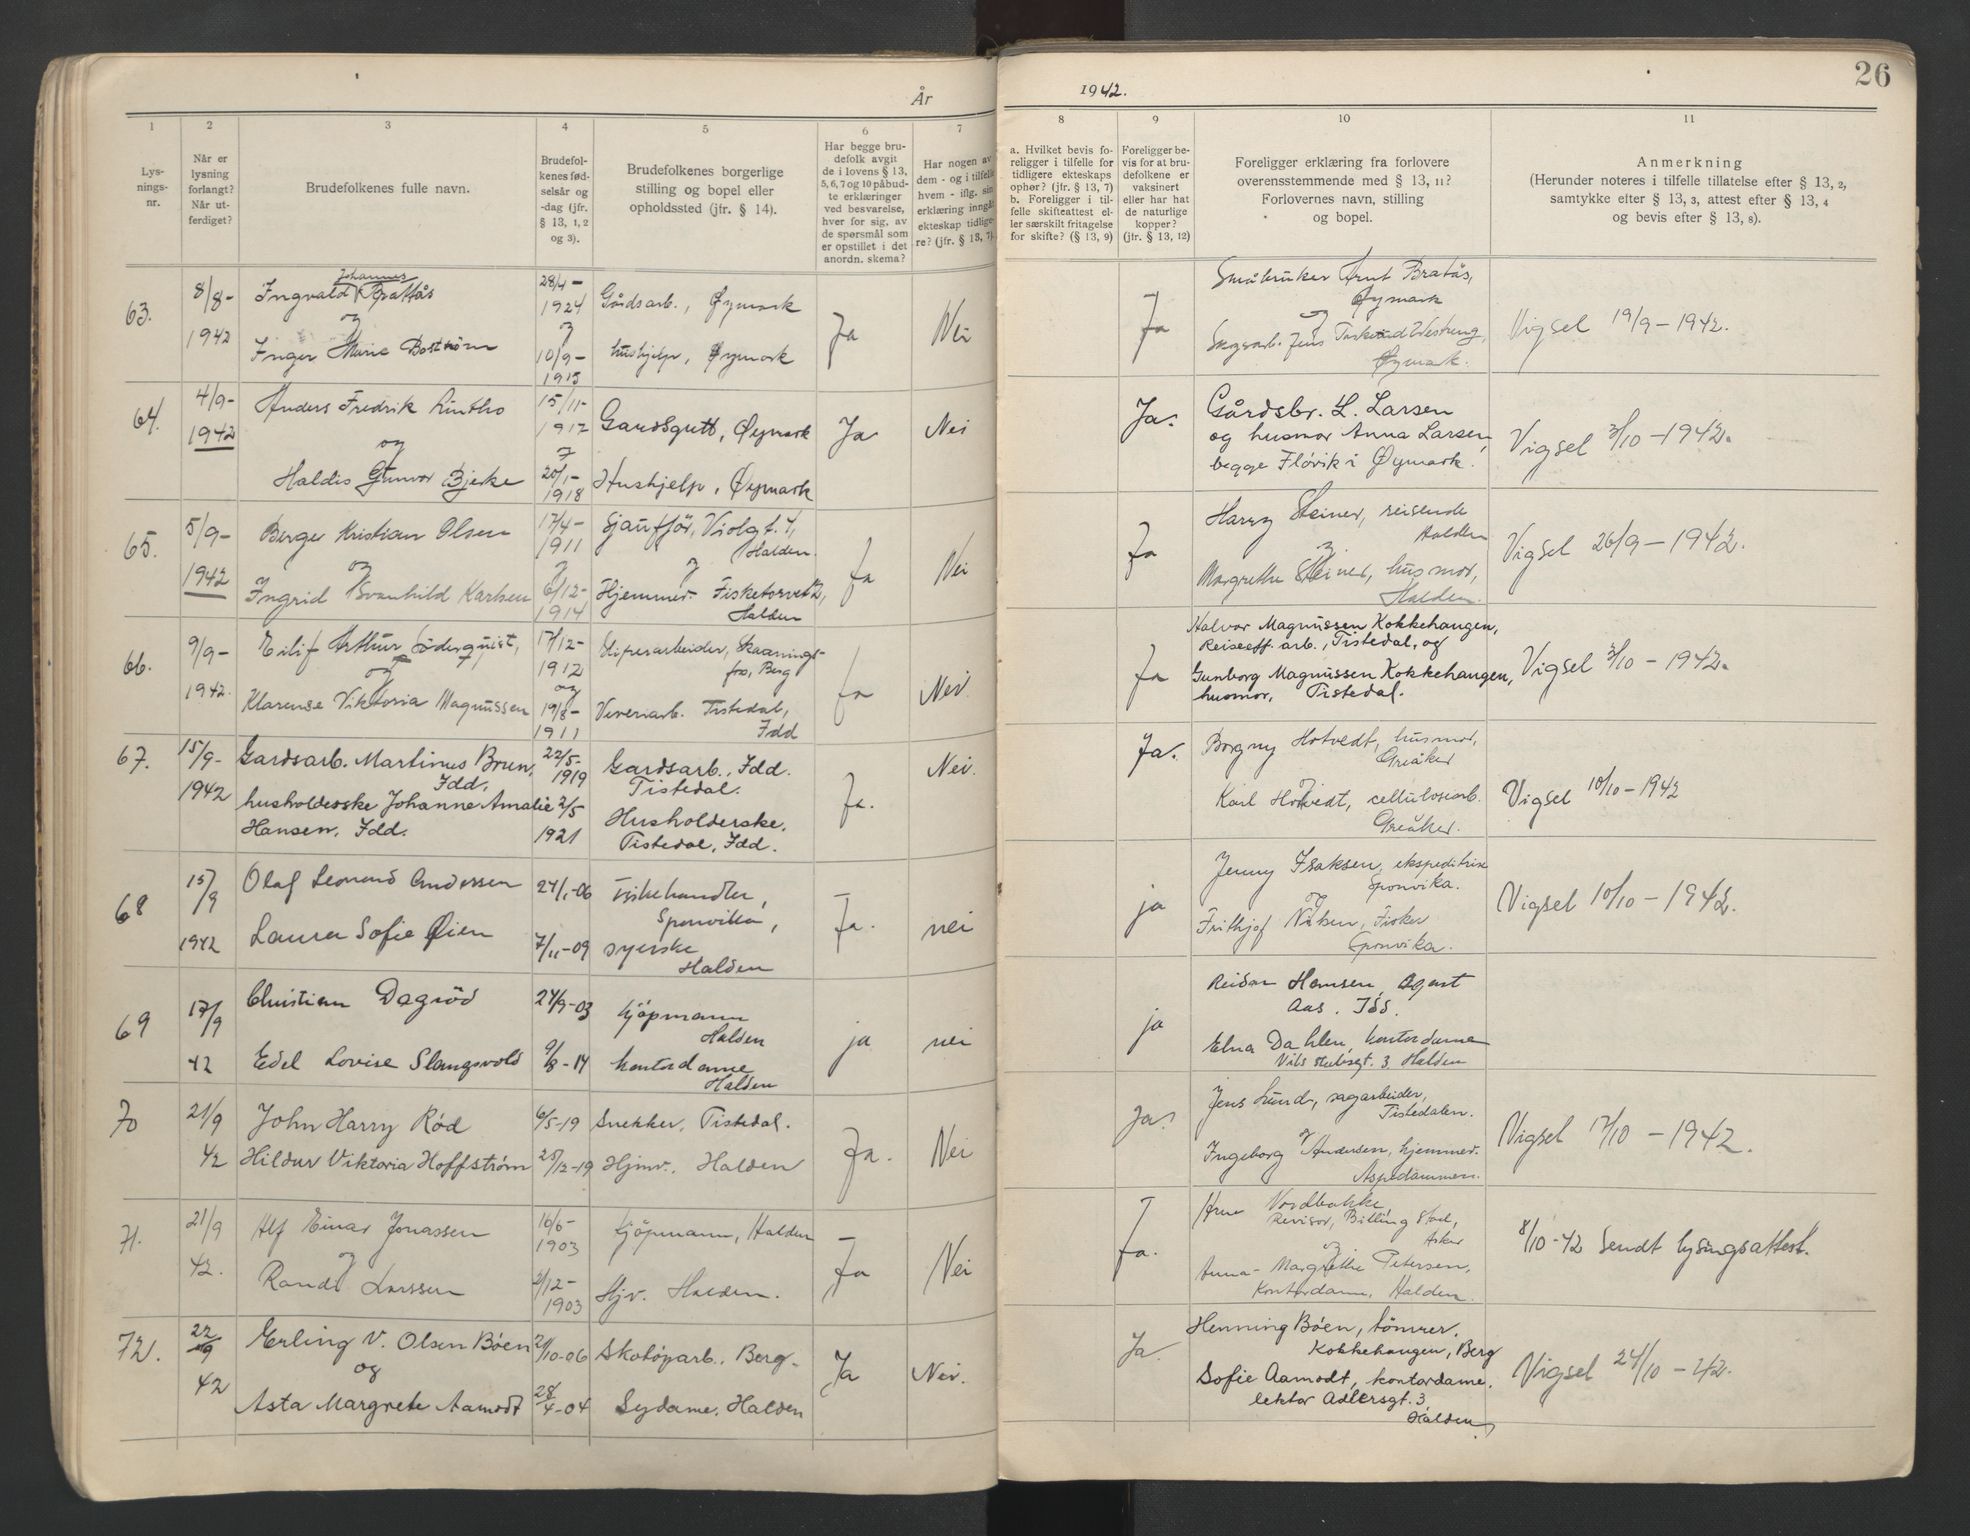 År
1942.
26
1
2
3
4
5
6
7
8
9
10
11
Lys-
nings-
nr.
Når er
lysning
forlangt?
Når ut-
ferdiget?
Brudefolkenes fulle navn.
Brudefol-
kenes fød-
selsår og
-dag (jfr.
§ 13, 1, 2
og 3).
Brudefolkenes borgerlige
stilling og bopel eller
opholdssted (jfr. § 14).
Har begge bru-
defolk avgit
de i lovens § 13,
5, 6, 7 og 10 påbud-
te erklæringer
ved besvarelse,
hver for sig, av
de spørsmål som
er opstillet i det
anordn. skema?
Har nogen av
dem - og i tilfelle
hvem - iflg. sin
erklæring inngåt
ekteskap tidlige-
re? (jfr. § 13, 7).
a. Hvilket bevis fo-
religger i tilfelle for
tidligere ekteskaps
ophør? (jfr. § 13, 7)
b. Foreligger i til-
felle skifteattest el-
ler særskilt fritagelse
for skifte? (§ 13, 9)
Foreligger be-
vis for at bru-
defolkene er
vaksinert
eller har hat
de naturlige
kopper?
(jfr. § 13, 12)
Foreligger erklæring fra forlovere
overensstemmende med § 13, 11?
Forlovernes navn, stilling
og bopel.
Anmerkning
(Herunder noteres i tilfelle tillatelse efter § 13, 2,
samtykke efter § 13, 3, attest efter § 13, 4
og bevis efter § 13, 8).
63.
8/8-
1942
Johannes
Ingvald Brattås
og
Inger Marie Boström
28/4-
1924
og
10/9-
1915
Gårdsarb., Øymark
hushjelp, Øymark
Ja
Nei
Ja
Småbruker Arnt Bratås,
Øymark
og
Skogsarb. Jens Westeng,
Øymark.
Vigsel 19/9-1942.
64.
4/9-
1942
Anders Fredrik Lintho
og
Haldis Gunvor Bjerke
15/11-
1912
20/1-
1918
Gardsgutt, Øymark
Hushjelp, Øymark
Ja
Nei
Ja.
Gårdsbr. L. Larsen
og husmor Anna Larsen,
begge Flövik i Øymark.
Vigsel 3/10-1942.
65.
5/9-
1942
Berger Kristian Olsen
og
Ingrid Svanhild Karlsen
17/4-
1911
og
6/12-
1914
Sjaufför, Violgt. 4,
Halden.
og
Hjemmev. Fisketorvet 2,
Halden
Ja
Nei
Ja
Harry Steiner, reisende
Halden
og
Margrethe Steiner, husmor,
Halden.
Vigsel 26/9-1942.
66.
9/9-
1942.
Eilif Arthur Söderquist,
og
Klarense Viktoria Magnussen
17/12-
1912
og
19/8-
1911
Sliperarbeider, Skaanings-
fos, Berg
Veveriarb. Tistedal,
Idd
Ja
Nei.
Ja
Halvor Magnussen Kokkehangen,
Reiseeff. arb., Tistedal, og
Gunborg Magnussen Kokkehangen,
husmor, Tistedal.
Vigsel 3/10-1942.
67.
15/9-
1942
Gardsarb. Martinus Brun,
Idd.
husholderske Johanne Amalie
Hansen, Idd.
22/5-
1919
2/5
1921
Gardsarb., Idd.
Tistedal.
Husholderske.
Tistedal, Idd.
Ja.
Nei.
Ja.
Borgny Hotvedt, husmor,
Greåker
og
Karl Hotvedt, cellulosearb.
Greåker.
Vigsel 10/10-1942
68
15/9
1942
Olaf Leonard Andersen
Laura Sofie Øien
24/1-06
7/11-09
Fiskehandler,
Sponvika,
syerske
Halden
Ja.
nei
ja
Jenny Isaksen, ekspeditrise
Sponvika.
og
Frithjof Nilsen, Fisker
Sponvika.
Vigsel 10/10-1942.
69
17/9
42
Christian Dagröd
Edel Lovise Slangsvold
24/9-03
9/8-14
kjöpmann
Halden
kontordame
Halden
ja
nei
ja
Reidar Hansen, Agent
Aas. Idd.
Elna Dahlen, kontordame
Nils Stubsgt. 3, Halden
70
21/9
42
John Harry Rød
Hildur Viktoria Hoffstrøm
6/5-19
25/12-19
Snekker, Tistedal.
Hjmv., Halden
Ja.
Nei
Ja.
Jens Lund, sagarbeider,
Tistedalen.
og
Ingeborg Andersen, hjemmev.
Aspedammen.
Vigsel 17/10-1942.
71.
21/9
42.
Alf Einar Jonassen
og
Randi Larssen
16/6-
1903
2/12-
1903
Kjöpmann, Halden
Hjv. Halden.
Ja
Nei
Ja.
Arne Nordbakke
Revisor, Billingstad,
Asker
og
Anna-Margrethe Petersen,
Kontordame, Halden.
8/10-42 Sendt lysingsattest.
72.
22/9
42
Erling V. Olsen Böen
og
Asta Margrete Aamodt
2/10-06
28/4-04
Skotöparb., Berg-
Sydame, Halden
Ja
Nei.
Ja.
Henning Böen, tömrer,
Kokkehangen, Berg
Sofie Aamodt, kontordame,
lektor Adlersgt. 3,
Halden
Vigsel 24/10-42.